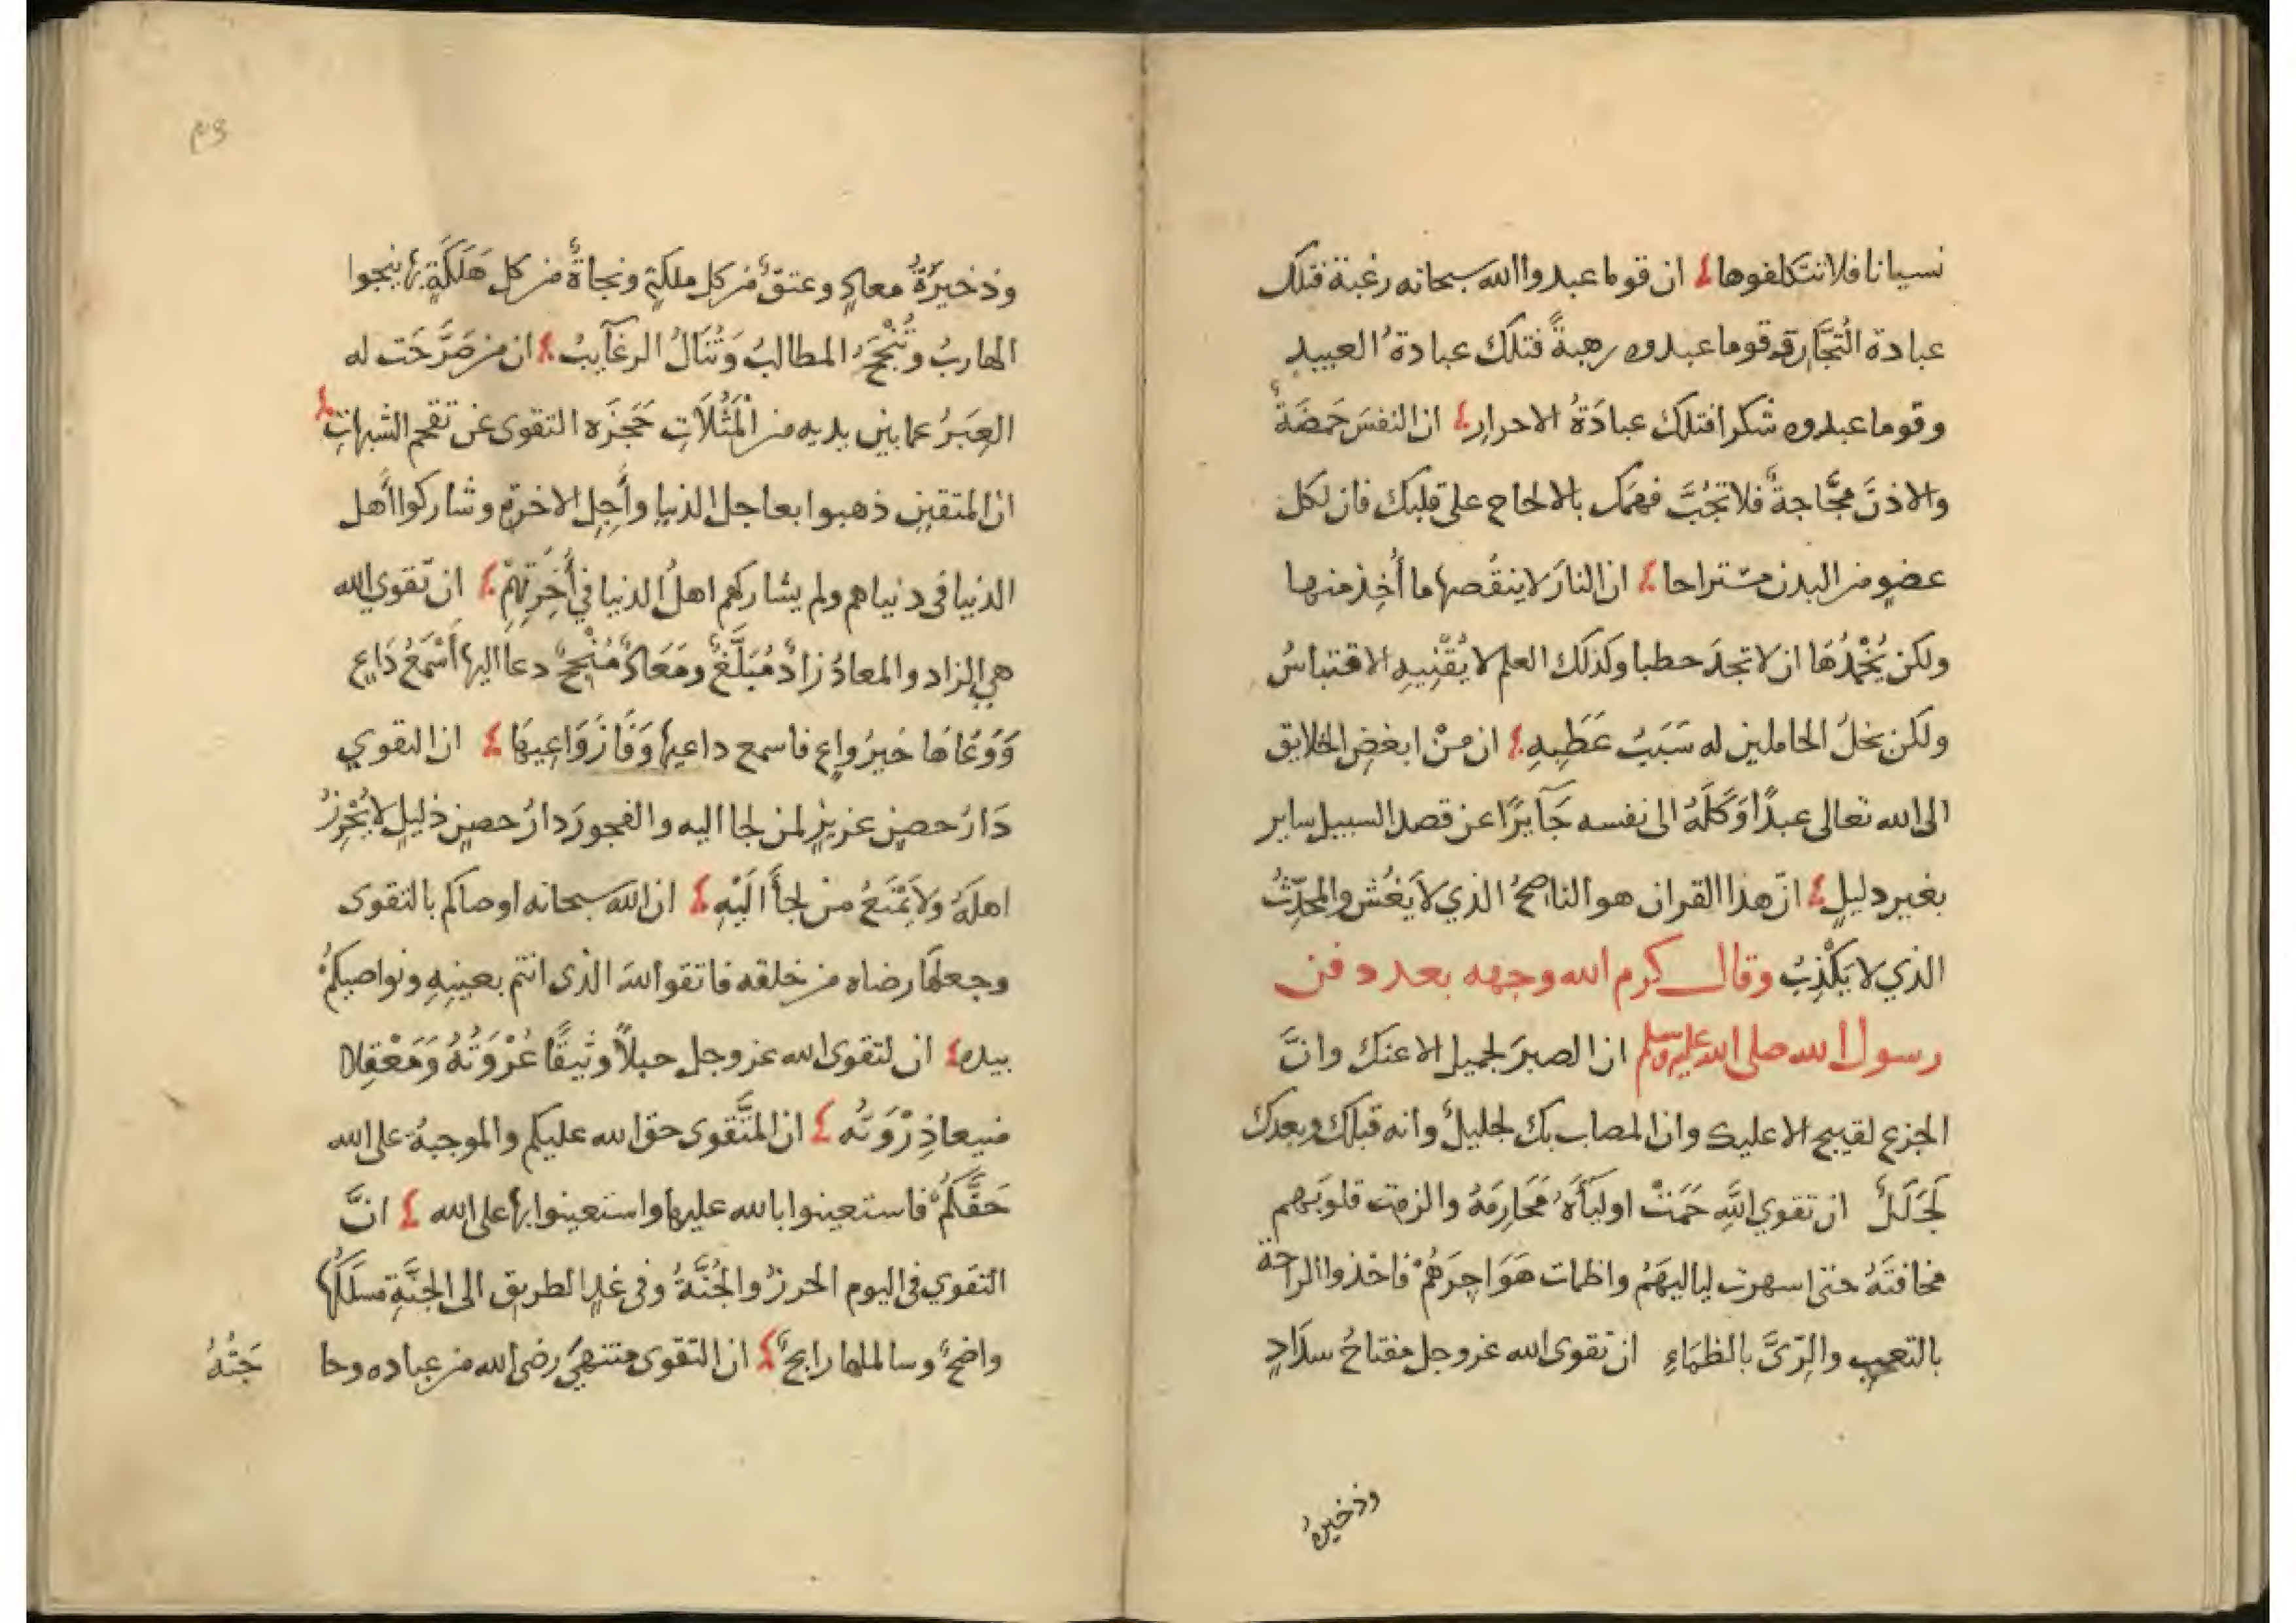 نسيانا فلا تتكلفوها ان قوما عبدوا الله سبحانه رغبة فتلك
عبادة التُجَّارِ وقوما عبدوه رهبةً فتلك عبادةُ العبيدِ
وقوما عبدوه شكرا فتلك عبادَةُ الاحرارِ ان النفسَ حَمِضَةٌ
والاذنَ مجَّاجةٌ فلا تجُبَّ فهمَك بالالحاح على قلبك فان لكل
عضوٍ من البدن مستراحا ان النارَ لا ينقُصها ما أُخِذ منها
ولكن يُخْمِدُهَا ان لا تجدَ حطبا وكذلك العلم لا يُفْنِيهِ الاقتباسُ
ولكن بخلُ الحاملين له سَبَبُ عَطَبِهِ ان مِنْ ابغضِ الخلايق
الى الله تعالى عبدًا وَكَلَهُ الى نفسه جَآيرًا عن قصد السبيل ساير
بغير دليلٍ انّ هذا القران هو الناصحُ الذي لا يَغُش والمحدِّثُ
الذي لا يَكْذِبُ وقال كرم الله وجهه بعد دفن
رسول الله صلى الله عليه وسلم ان الصبرَ لجميل الا عنك وانَّ
الجزع لقبيح الا عليك وان المصاب بك لجليلٌ وانه قبلك وبعدك
لَجَلَلٌ ان تقوي اللهِ حَمَتْ اوليَآءَهُ مَحَارِمَهُ والزمت قلوبَهم
مخافتَهُ حتى اسهرت لياليَهُمْ واظمات هَوَاجِرَهُمْ فاخذوا الراحة
بالتعبِ والرِّىَّ بالظمَاءِ ان تقوى الله عز وجل مفتاحُ سدَادٍ
وذخيرة
وم
وذخيرَةُ معادٍ وعتقٌ من كل ملكةٍ ونجاةٌ من كل هَلَكَةٍ بها ينجوا
الهاربُ وتُنْجَحُ المطالبُ وَتُنَالُ الرغآيبُ ان من صَرَّحَت له
العِبَرُ عما بين يديه من الْمَثُلَاتِ حَجَزَه التقوى عن تقحم الشبهاتِ
ان المتقين ذهبوا بعاجل الدنيا وأَجِلِ الاخرةِ وشاركوا أهل
الدنيا في دنياهم ولم يشاركهم اهلُ الدنيا في أَخِرَتِهِمْ ان تقوي الله
هي الزاد والمعادُ زادٌ مُبَلِّغٌ ومَعَادٌ مُنْجِحٌ دعا اليها أَسْمَعُ دَاعٍ
وَوَعَاهَا خيرُ واعٍ فاسمع داعيها وَفَازَ وَاعِيهَا ان التقوي
دَارُ حصنٍ عزيزٍ لمن لجا اليه والفجورَ دارُ حصنٍ ذليلٍ لا يُحْرِزُ
اهلَهُ ولا يَمْنَعُ من لجأَ الَيْهِ ان الله سبحانه اوصاكم بالتقوى
وجعلها رضاه من خلقه فاتقوا الله الذى انتم بعينِهِ ونواصيكمُ
بيده ان لتقوى الله عز وجل حبلاً وثيقًا عُرْوَتُهُ وَمَعْقِلا
منيعا ذِرْوَتُه ان التَّقوى حق الله عليكم والموجبةُ على الله
حَقَّكُمْ فاستعينوا بالله عليها واستعينوا بها على الله انَّ
التقوي في اليوم الحرزُ والجُنَّةُ وفي غدٍ الطريق الى الجنَّةِ مسلَكُها
واضحٌ وسالكها رابحٌ ان التقوى منتهىَ رضى الله من عباده وحا
جَتُهُ